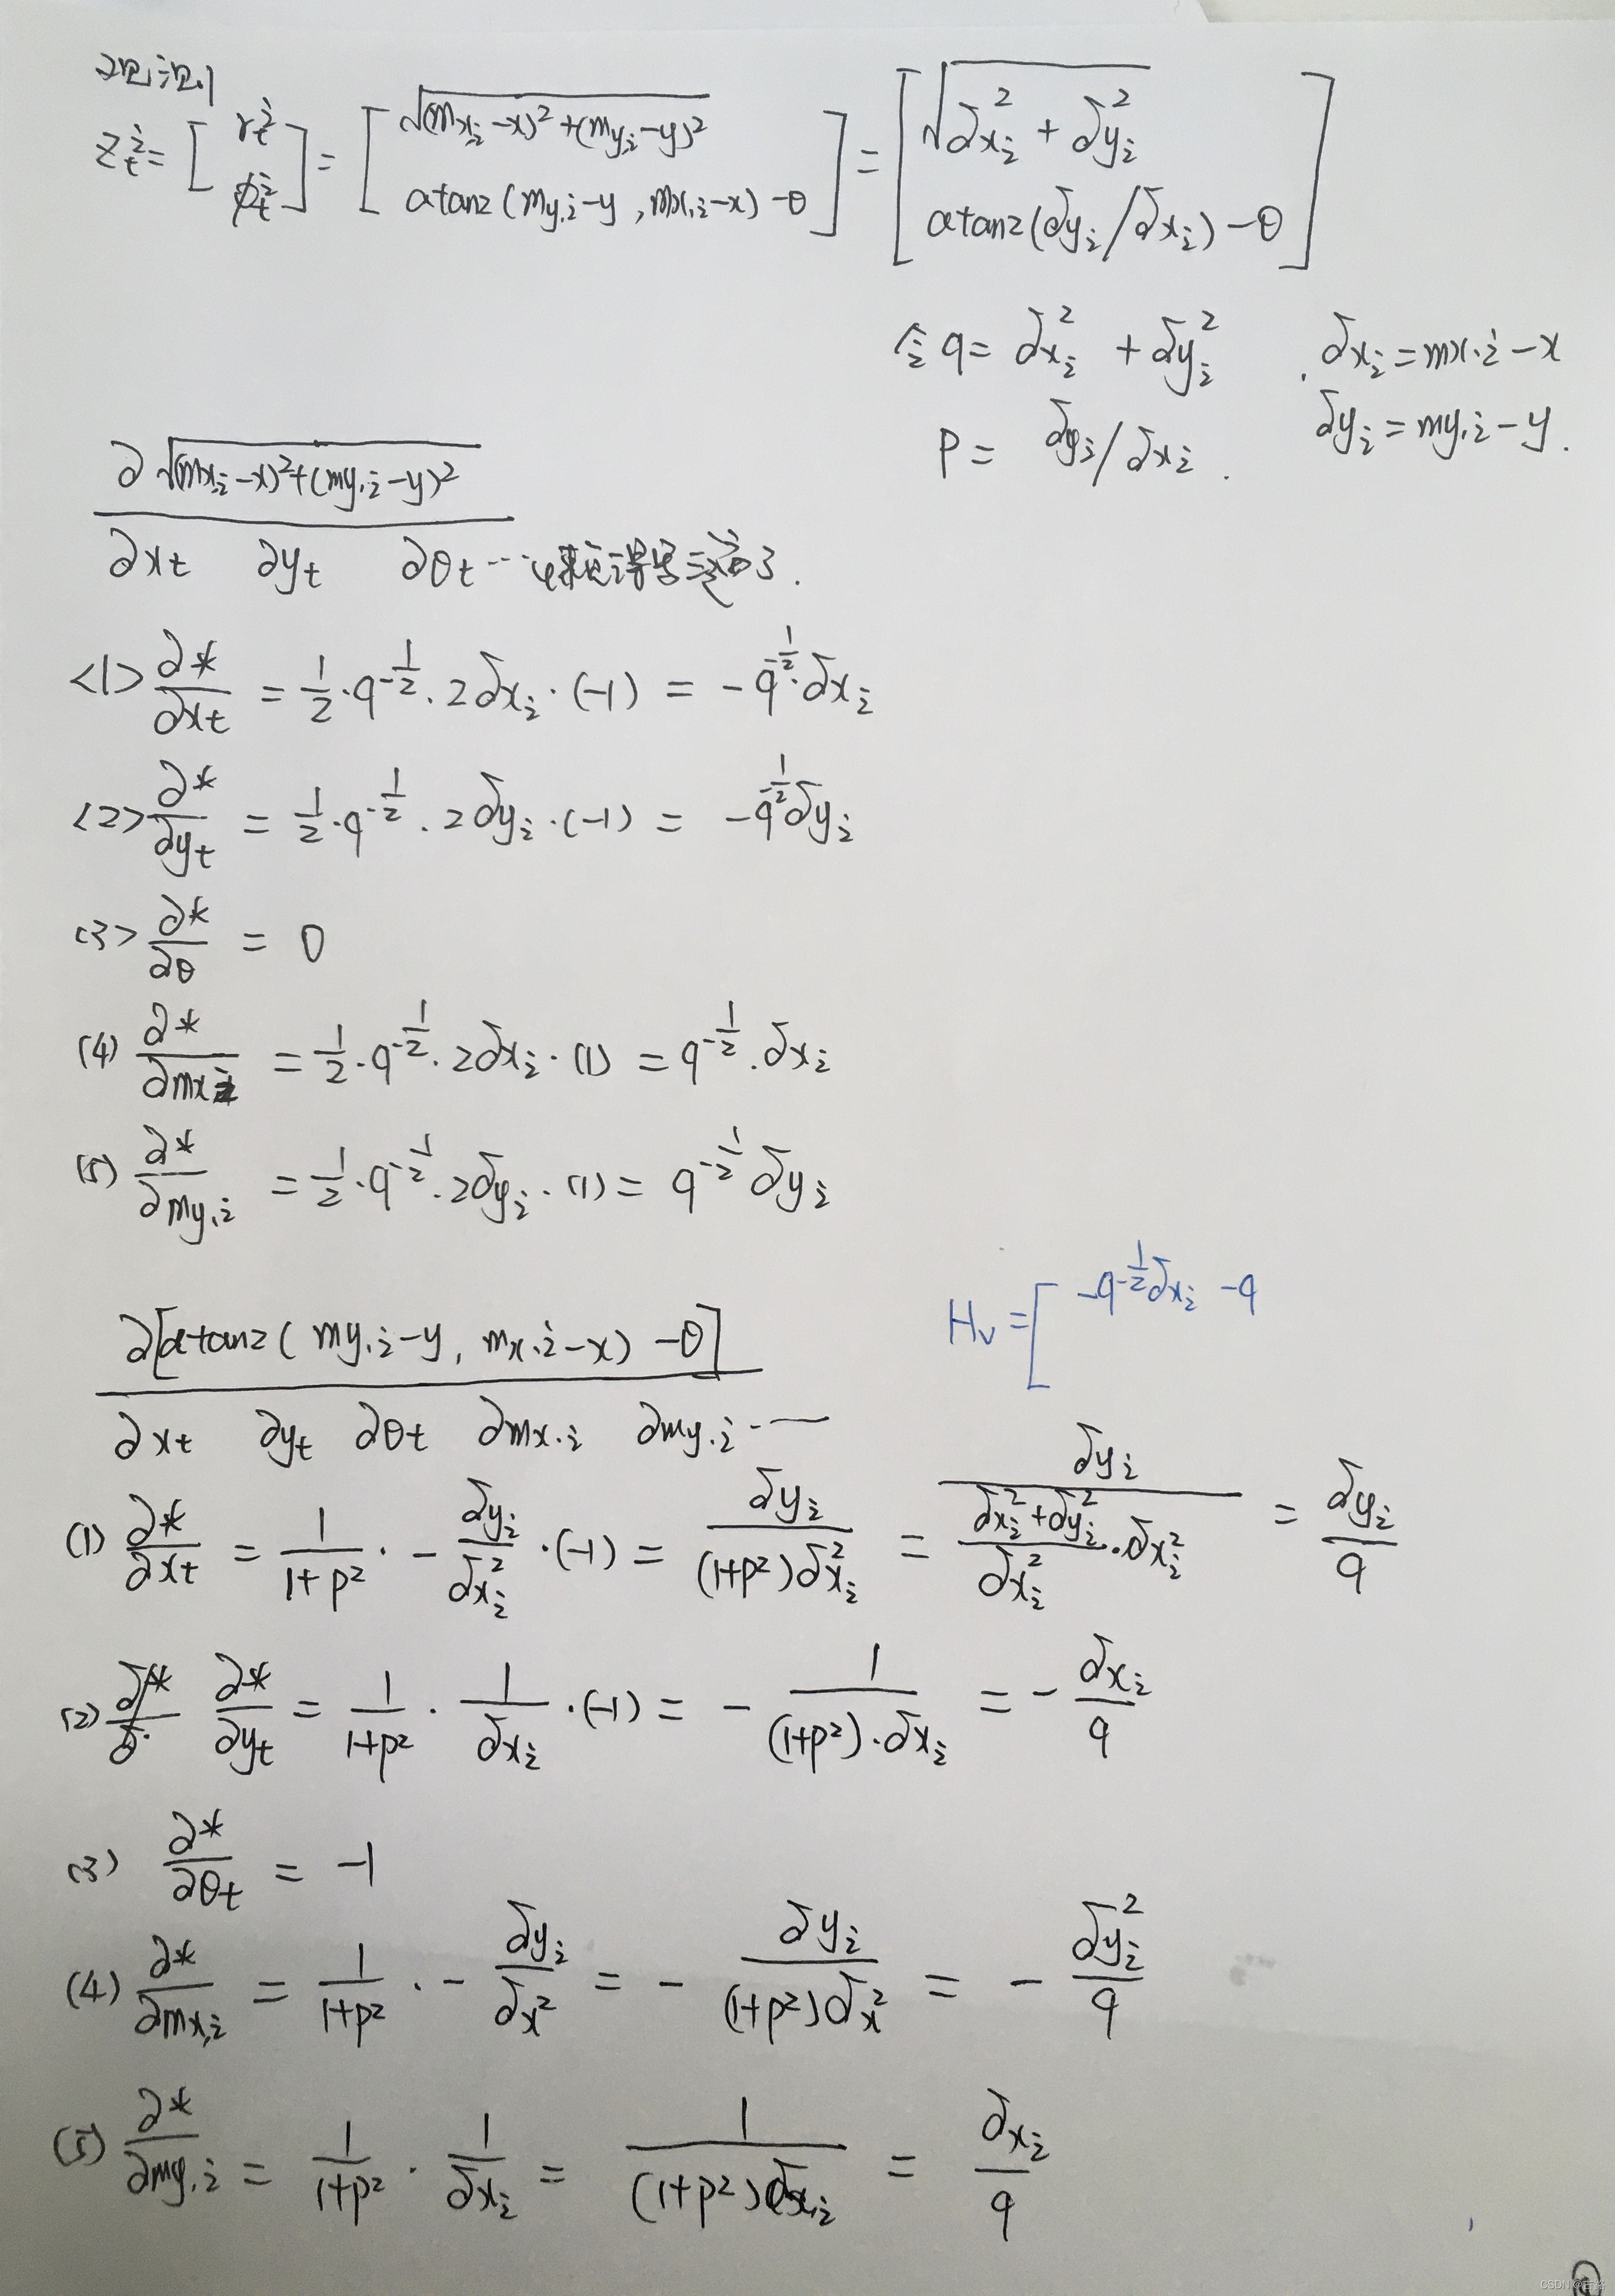 观测
Z_t^i = [ r_t^i ; φ_t^i ] = [ √(m_{x,i}-x)²+(m_{y,i}-y)² ; atan2(m_{y,i}-y, m_{x,i}-x)-θ ] = [ √δx_i²+δy_i² ; atan2(δy_i/δx_i)-θ ]
令 q= δx_i² + δy_i² . δx_i = mx,i-x
P= δy_i/δx_i . δy_i = my,i-y.
∂√(mx,i-x)²+(my,i-y)²
∂xt ∂yt ∂θt ...
<1> ∂*/∂xt = 1/2·q^{-1/2}·2δx_i·(-1) = -q^{-1/2}·δx_i
<2> ∂*/∂yt = 1/2·q^{-1/2}·2δy_i·(-1) = -q^{-1/2}δy_i
<3> ∂*/∂θ = 0
(4) ∂*/∂mx,i = 1/2·q^{-1/2}·2δx_i·(1) = q^{-1/2}·δx_i
(5) ∂*/∂my,i = 1/2·q^{-1/2}·2δy_i·(1) = q^{-1/2}δy_i
Hv = [ -q^{-1/2}δx_i -q
∂[atan2(my,i-y, mx,i-x)-θ]
∂xt ∂yt ∂θt ∂mx,i ∂my,i ...
(1) ∂*/∂xt = 1/(1+p²)·-δy_i/δx_i²·(-1) = δy_i/((1+p²)δx_i²) = δy_i/((δx_i²+δy_i²)/δx_i²·δx_i²) = δy_i/q
(2) ∂*/∂yt = 1/(1+p²)·1/δx_i·(-1) = -1/((1+p²)·δx_i) = -δx_i/q
(3) ∂*/∂θt = -1
(4) ∂*/∂mx,i = 1/(1+p²)·-δy_i/δx² = -δy_i/((1+p²)δx²) = -δy_i²/q
(5) ∂*/∂my,i = 1/(1+p²)·1/δx_i = 1/((1+p²)δx,i) = δx_i/q